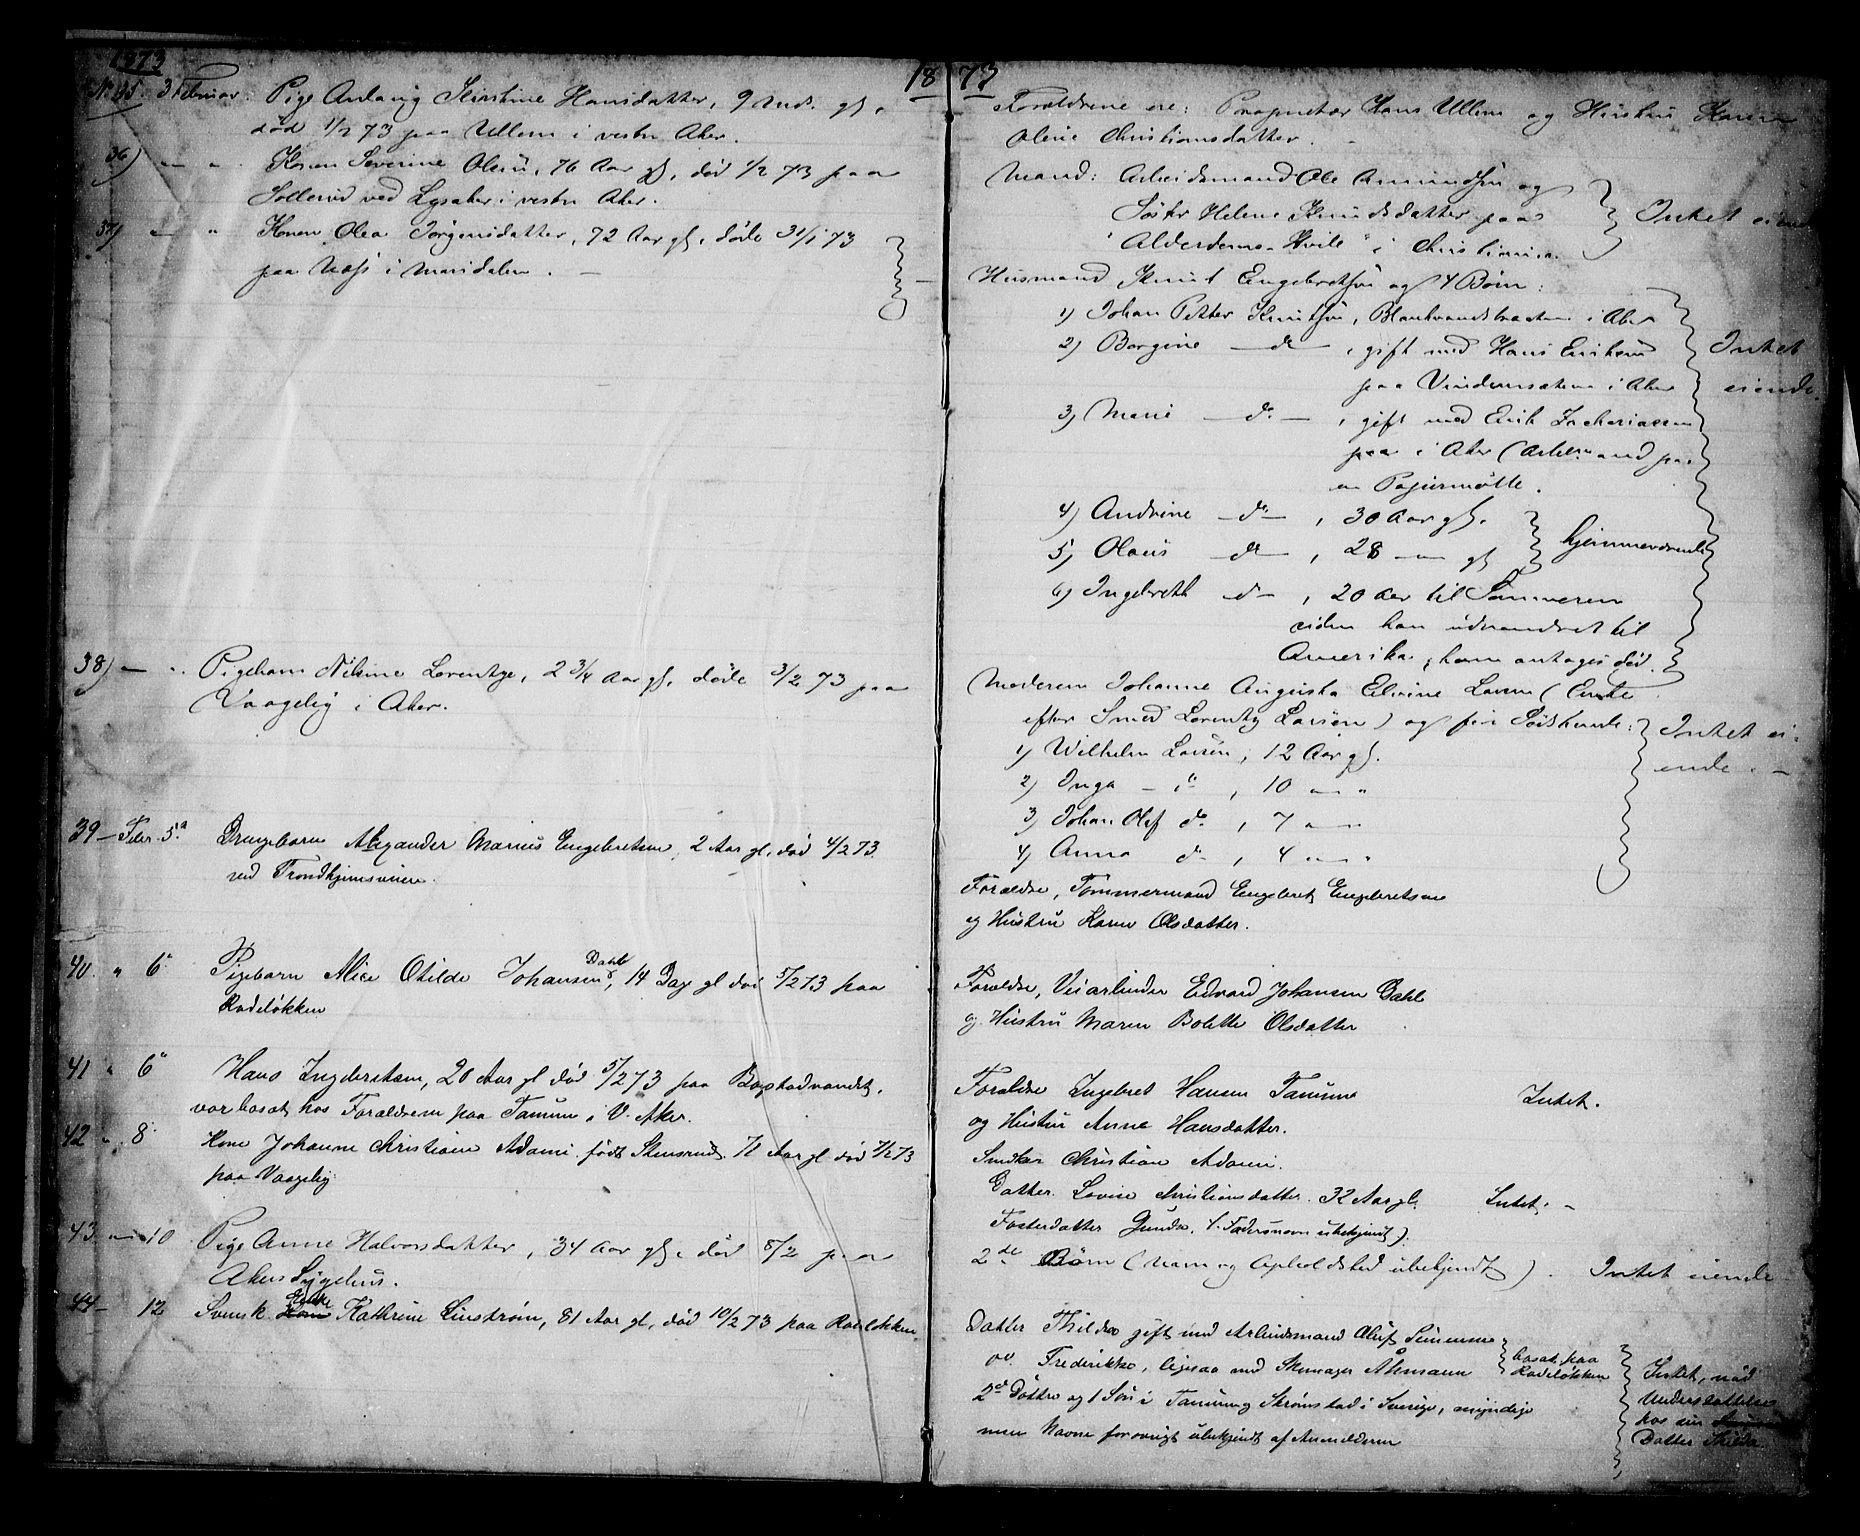 1873
18 73
No 35. 3 Februar. Pige Anlaug Kirstine Hansdatter, 9 Mdr. gl,
død 1/2 73 paa Ullern i vestre Aker.
36) — " Konen Severine Olsen, 76 Aar gl, død 1/2 73 paa
Sollerud ved Lysaker i vestre Aker.
37) — " Konen Olea Jørgensdatter, 72 Aar gl, døde 31/1 73
paa Næss i Maridalen. —
38) — " Pigebarn Nilsine Lorentze, 2 3/4 Aar gl, døde 3/2 73 paa
Vaagebig i Aker.
39 — Febr. 5. Drengebarn Alexander Marius Engebretsen, 2 Aar gl, død 4/2 73
ved Trondhjemsveien.
40. " 6 Pigebarn Alice Otilde Johansen Dahl, 14 Dage gl død 5/2 73 paa
Rodeløkken
41 " 6 Hans Ingebretsen, 20 Aar gl død 5/2 73 paa Bogstadvandet,
var bosat hos Forældrene paa Tamum i V. Aker.
42 " 8 Kone Johanne Christiane Adami født Stensrud 71 Aar gl død 7/2 73
paa Vaagebig
43 — 10 Pige Anne Halvorsdatter, 34 Aar gl, død 8/2 paa
Akers Sygehus.
44 — 12 Svensk Enke Kathrine Linstrøm, 81 Aar gl, død 10/2 73 paa Rodeløkken
Forældrene ere: Proprietær Hans Ullern og Hustru Karen
Oline Christiansdatter.
Mand: Arbeidsmand Ole Amundsen og
Søster Helene Knudsdatter paa
"Alderdoms-Hvile" i Christiania. Intet eiende
Husmand Knut Engebretsen og 4 Børn:
1) Johan Petter Knutsen, Blankvandsbraaten i Aker
2) Bergine — do — , gift med Hans Eriksen
paa Vinderensæteren i Aker Intet eiende.
3) Marie — do — , gift med Erik Zachariassen
paa i Aker (Arbeidsmand paa
en Papirmølle.
4) Andrine — do — , 30 Aar gl.
5) Olaus do — , 28 — gl hjemmeværende
6) Ingebrekt do — , 20 Aar til Sommeren
siden han udvandret til
Amerika, han antages død.
Moderen Johanne Augusta Elvine Larsen (Enke
efter Smed Lorentz Larsen) og fire Søskende:
1) Wilhelm Larsen, 12 Aar gl. Intet eiende. —
2) Inga — do , 10 — "
3) Johan Olaf do , 7 —
4) Anna do , 4 — "
Forældre, Tømmermand Engebret Engebretsen
og Hustru Karen Olsdatter.
Forældre, Veiarbeider Edvard Johansen Dahl
og Hustru Maren Bolette Olsdatter
Forældre Ingebret Hansen Tamum
og Hustru Anne Hansdatter. Intet.
Snedker Christian Adami.
Datter Lovise Christiansdatter 32 Aar gl. Intet. —
Fosterdatter Gunda, (Fadersnavn ubekjendt).
2de Børn (Navn og Opholdsted ubekjendt). Intet eiende
Datter Thilda gift med Arbeidsmand Oluf Simensen
og Frederikke, ligesaa med Skomager Åkmann bosat paa Rodeløkken
2de Døttre og 1 Søn i Tanum og Strømstad i Sverige, myndige
men Navne forøvrigt ubekjendt af Anmelderen
Intet, nød
Understøttelse
hos sin
Datter Thilda